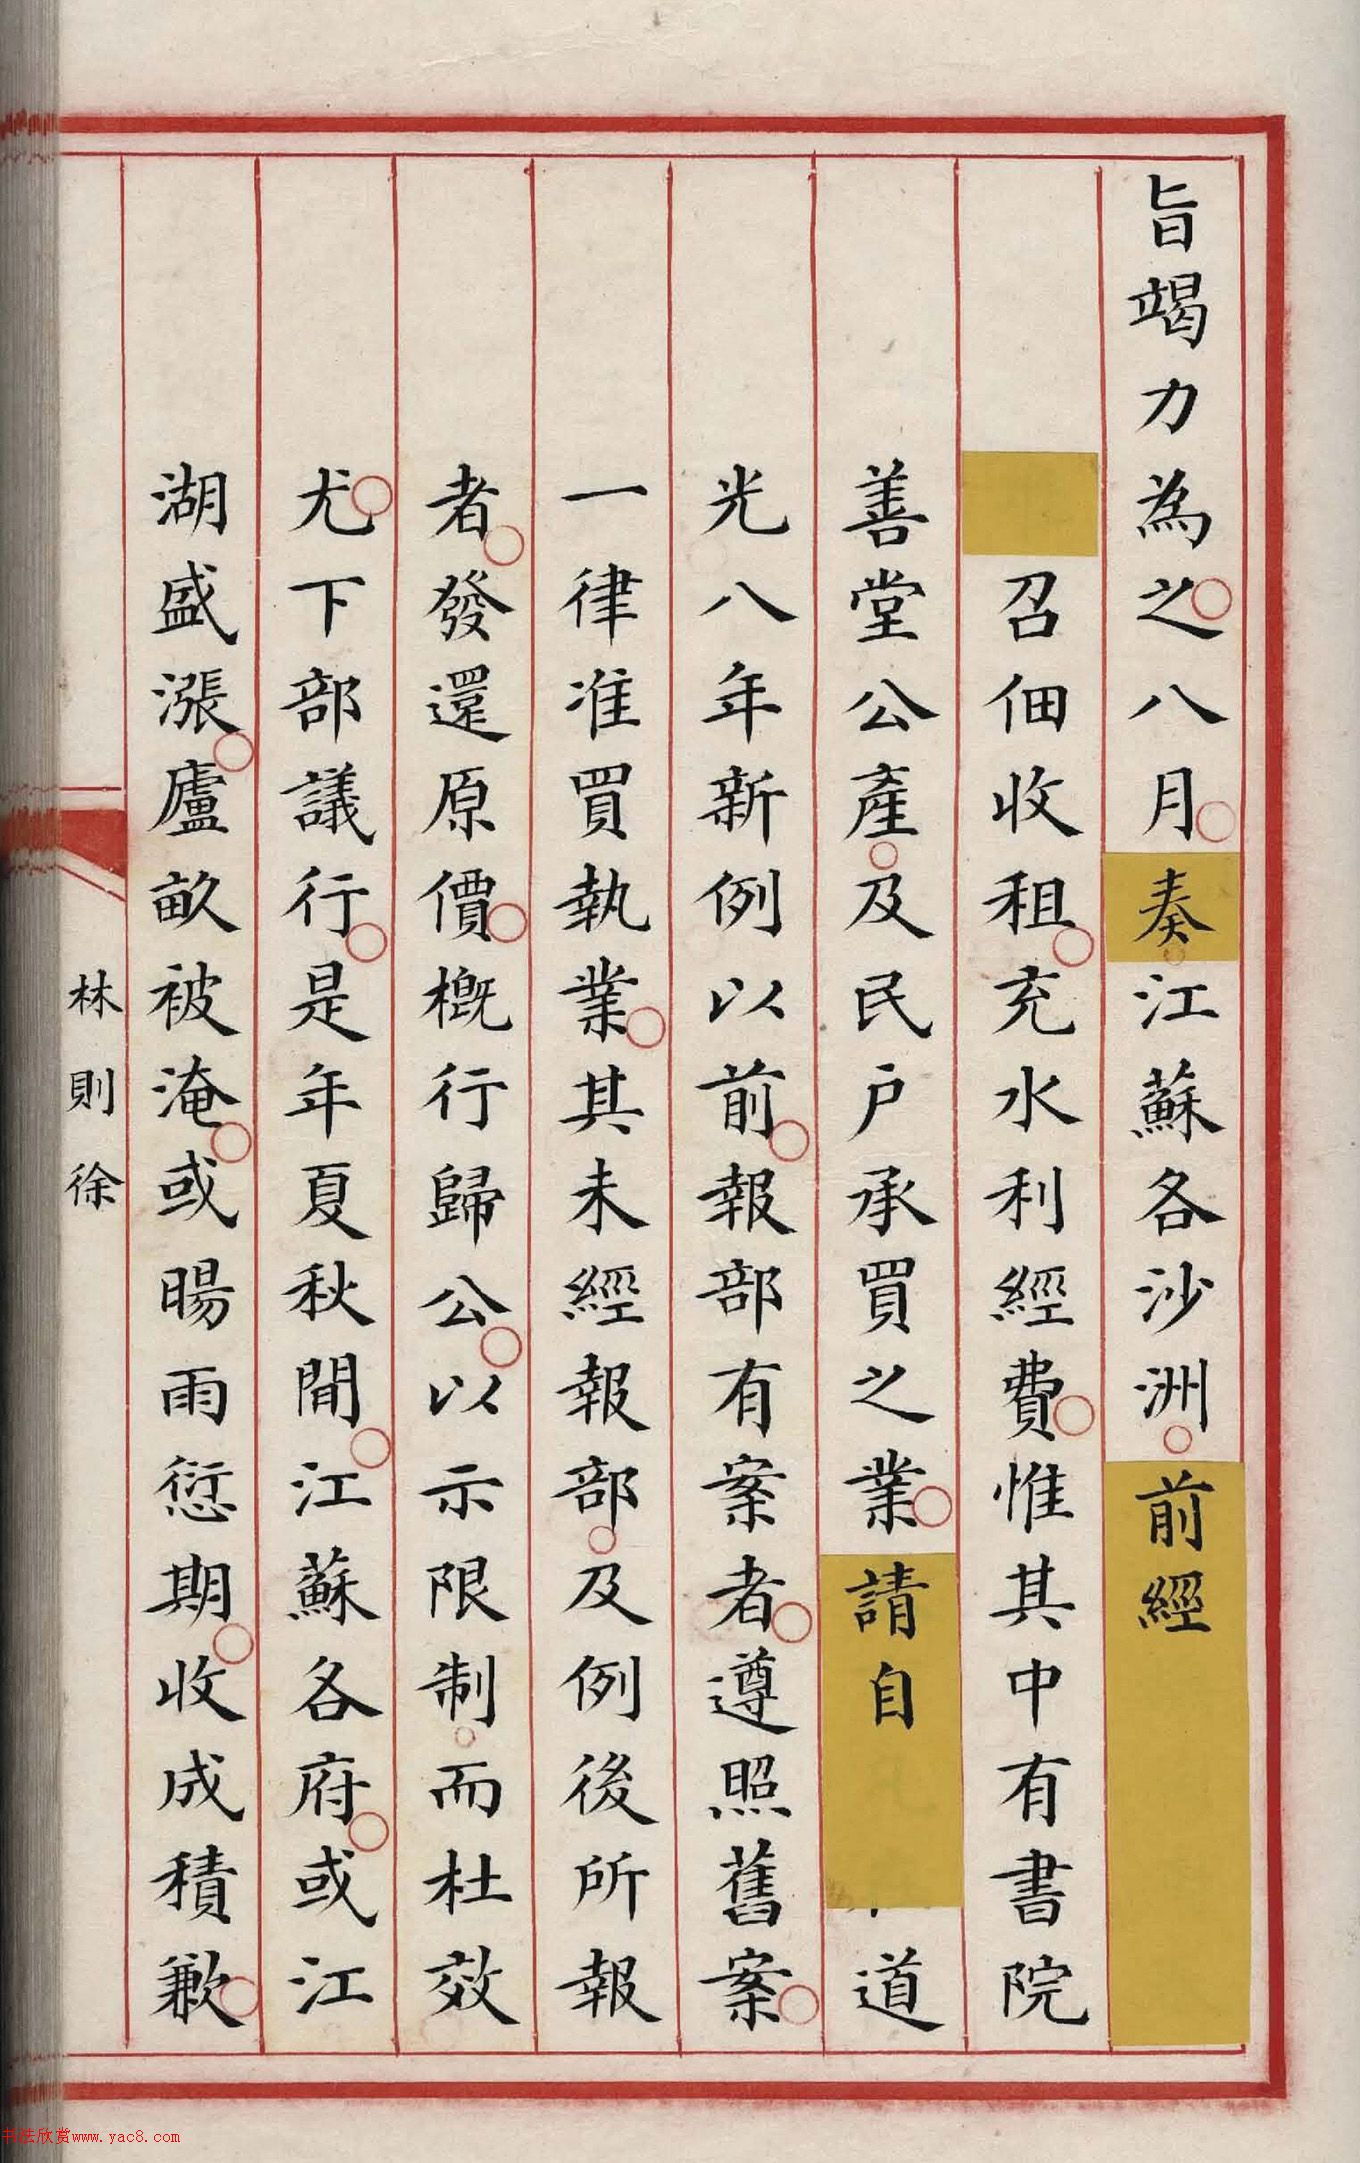 旨竭力為之八月奏江蘇各沙洲前經
召佃收租充水利經費惟其中有書院
善堂公產及民戶承買之業請自道
光八年新例以前報部有案者遵照舊案
一律准買執業其未經報部及例後所報
者發還原價概行歸公以示限制而杜效
尤下部議行是年夏秋間江蘇各府或江
湖盛漲廬畝被淹或暘雨愆期收成積歉
林則徐
书法欣赏www.yac8.com